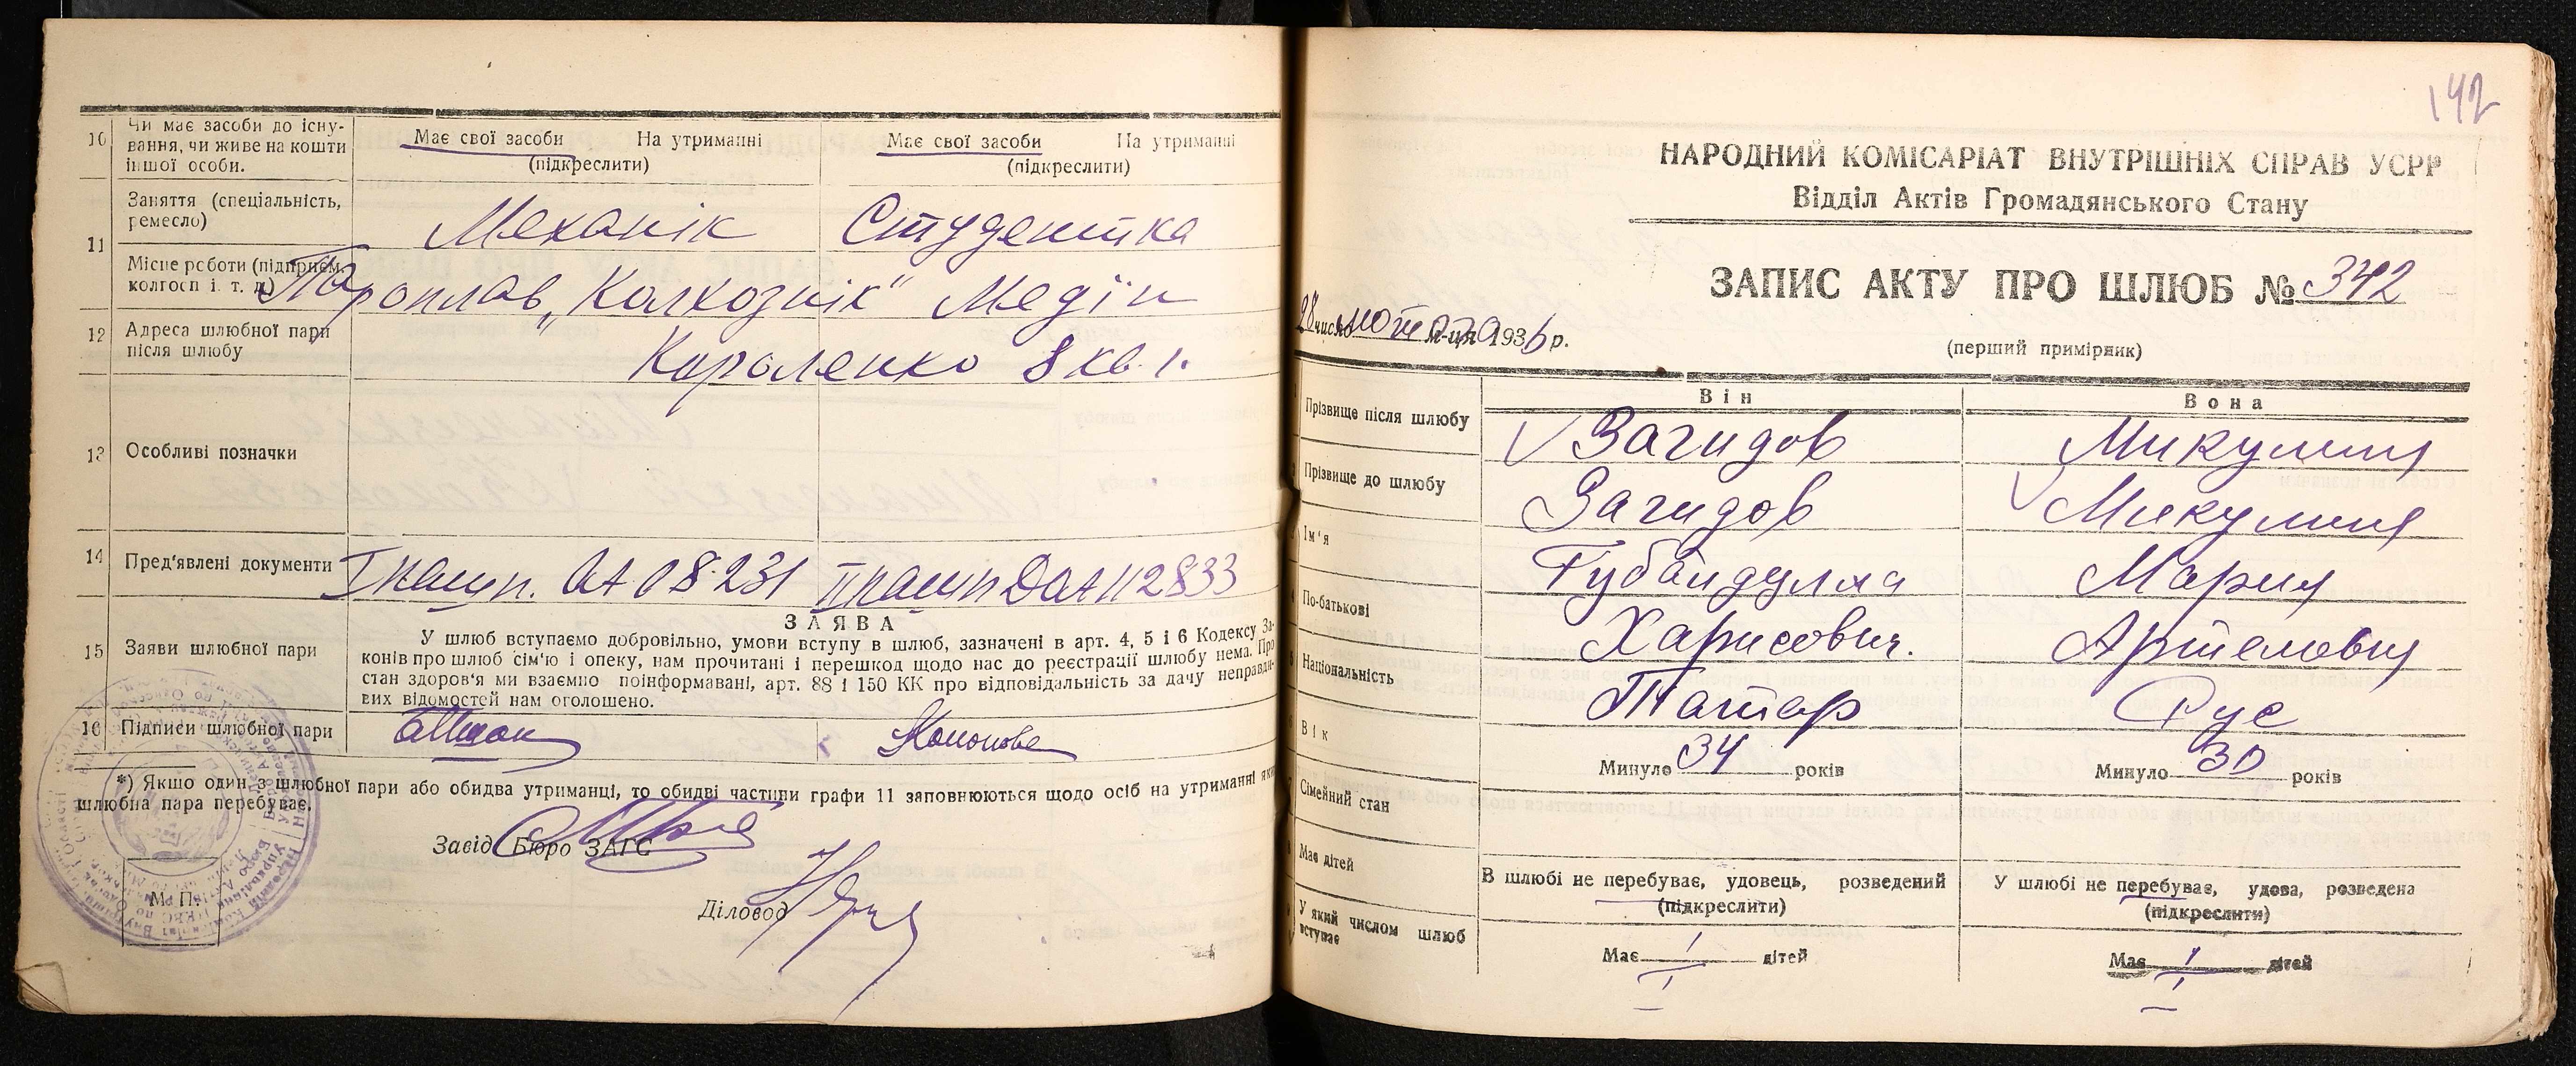 10
Чи має засоби до існу-
вання, чи живе на кошти
іншої особи.
Має свої засоби На утриманні
(підкреслити)
Має свої засоби На утриманні
(підкреслити)
11
Заняття (спеціальність,
ремесло)
Механік
Студентка
Місце роботи (підприєм.
колгосп і. т. д.)
Пароплав „Колхознік“
Медін
12
Адреса шлюбної пари
після шлюбу
Короленко 8 кв. 1.
13
Особливі позначки
14
Пред'явлені документи
15
Заяви шлюбної пари
ЗАЯВА
У шлюб вступаємо добровільно, умови вступу в шлюб, зазначені в арт. 4, 5 і 6 Кодексу За-
конів про шлюб сім'ю і опеку, нам прочитані і перешкод щодо нас до реєстрації шлюбу нема. Про
стан здоров'я ми взаємно поінформавані, арт. 88 і 150 КК про відповідальність за дачу неправди-
вих відомостей нам оголошено.
16
Підписи шлюбної пари
*) Якщо один з шлюбної пари або обидва утриманці, то обидві частини графи 11 заповнюються щодо осіб на утриманні яких
шлюбна пара перебуває.
Завід. Бюро ЗАГС
Діловод
М. П.
142
НАРОДНИЙ КОМІСАРІАТ ВНУТРІШНІХ СПРАВ УСРР
Відділ Актів Громадянського Стану
ЗАПИС АКТУ ПРО ШЛЮБ № 342
28 число лютого м-ця 1936 р.
(перший примірник)
Він
Вона
Прізвище після шлюбу
Загидов
Прізвище до шлюбу
Загидов
Ім'я
Губайдулла
Мария
По-батькові
Харисович.
Артемовна
Національність
Татар
Рус
Вік
Минуло 34 років
Минуло 30 років
Сімейний стан
В шлюбі не перебуває, удовець, розведений
(підкреслити)
У шлюбі не перебуває, удова, розведена
(підкреслити)
Має дітей
Має 1 дітей
Має 1 дітей
У який числом шлюб
вступає
I
I